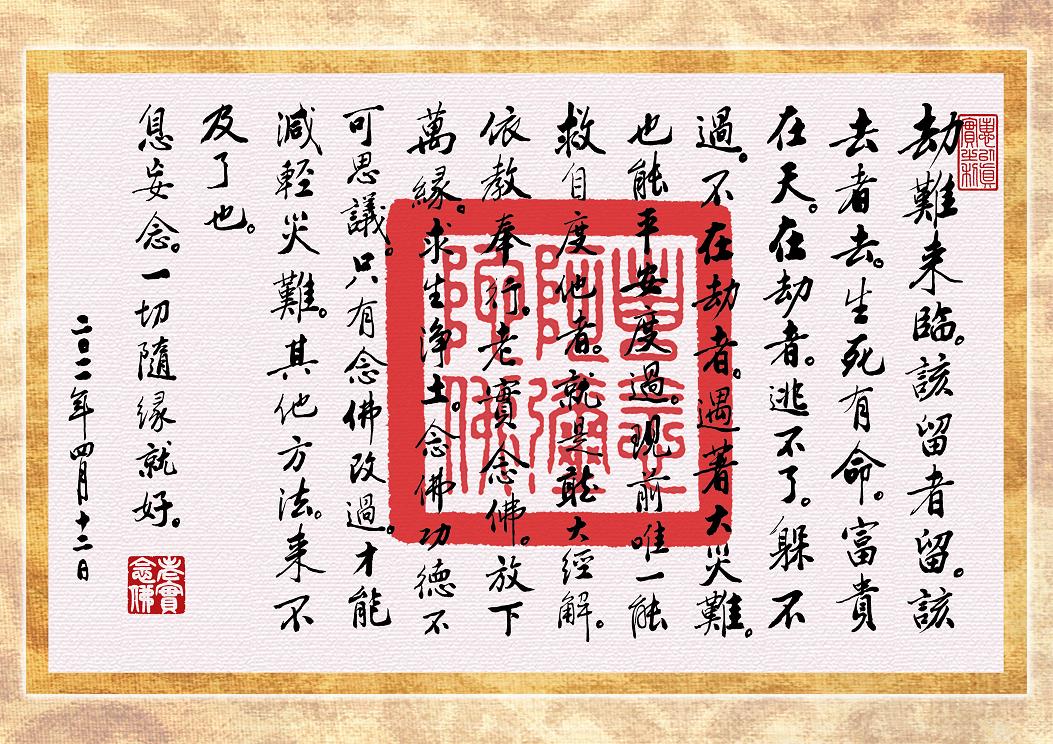 惠以真實之利
劫難来臨。該留者留。該
去者去。生死有命。富貴
在天。在劫者。逃不了。躲不
過。不在劫者。遇著大災難。
也能平安度過。現前唯一能
救自度他者。就是聽大經解。
依教奉行。老實念佛。放下
萬緣。求生淨土。念佛功德不
可思議。只有念佛改過。才能
減輕災難。其他方法。来不
及了也。
息妄念。一切隨緣就好。
二〇一一年四月十二日
老實念佛
南無阿彌陀佛